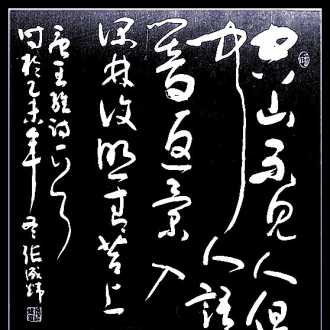 空山不見人但
聞人語
響返景入
深林復照青苔上
唐王維詩一首
時於乙未年冬